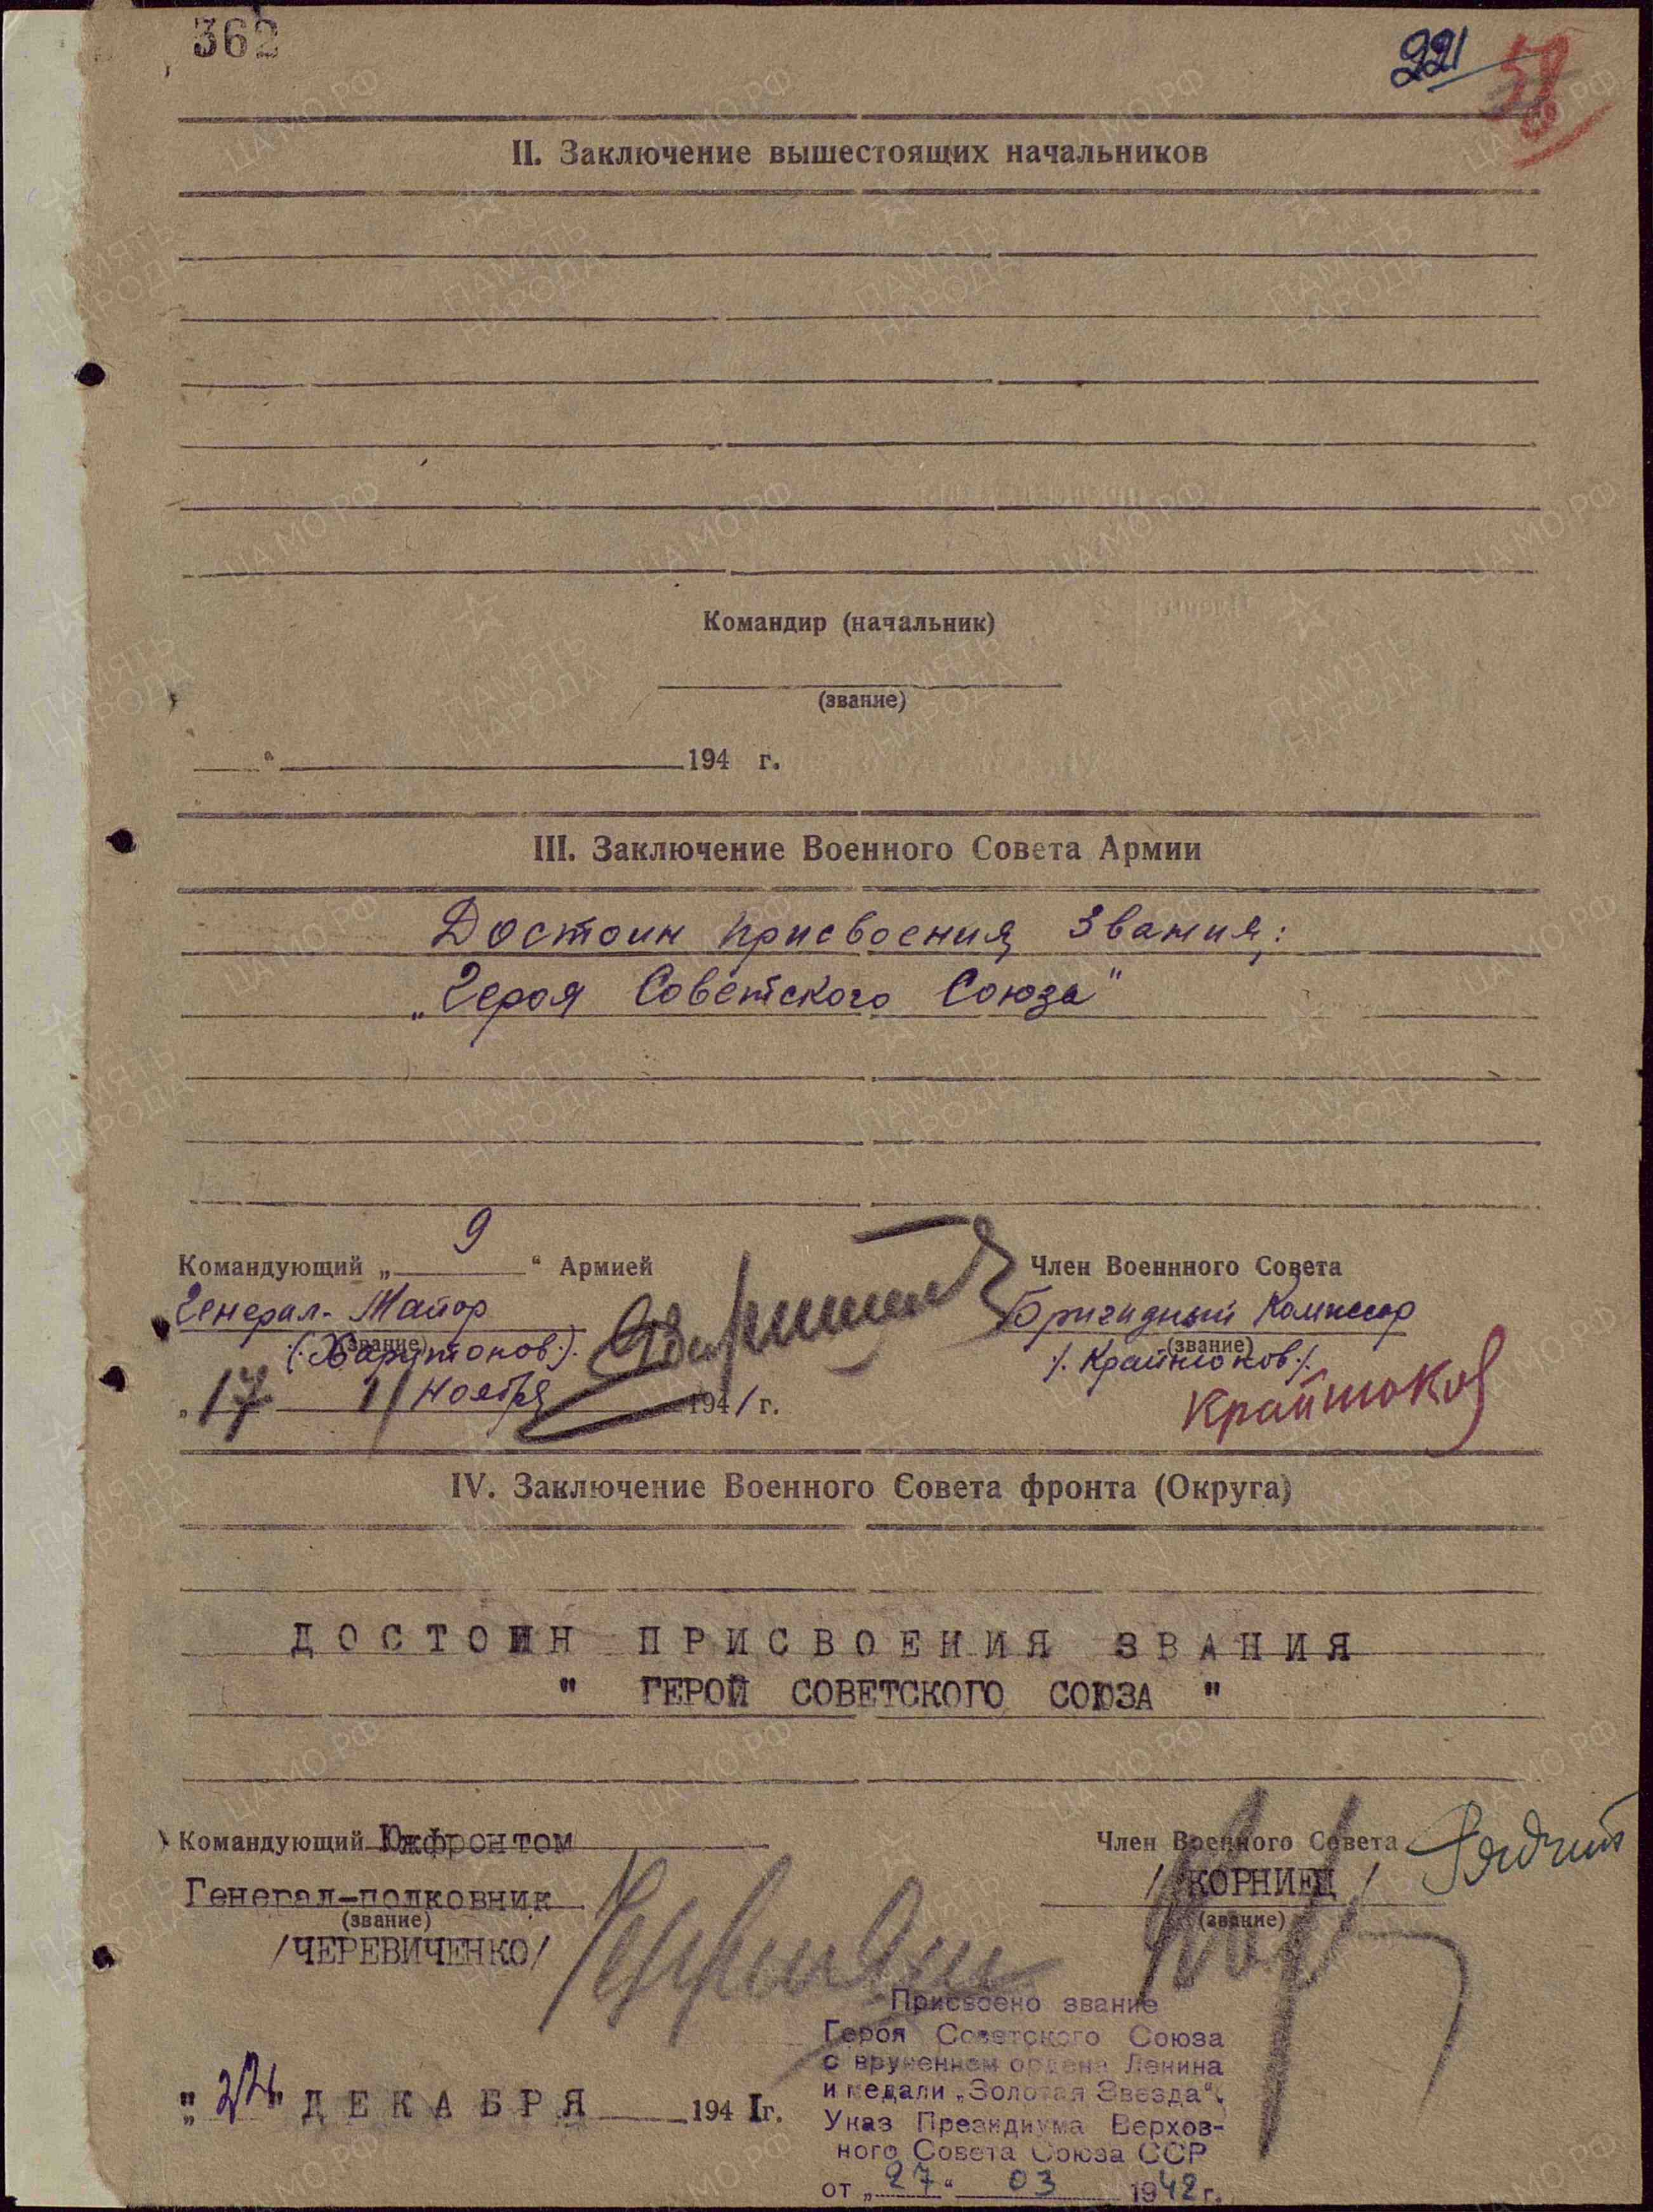 362
221 58
II. Заключение вышестоящих начальников
Командир (начальник)
(звание)
" 194 г.
III. Заключение Военного Совета Армии
Достоин присвоения звания:
„Героя Советского Союза"
Командующий „ 9 " Армией
Член Военнного Совета
Генерал-Майор
Бригадный Комиссар
(звание)
(звание)
(Харитонов)
/. Крайнюков /.
„17 11 ноября 1941 г.
Крайнюков
IV. Заключение Военного Совета фронта (Округа)
ДОСТОИН ПРИСВОЕНИЯ ЗВАНИЯ
" ГЕРОЙ СОВЕТСКОГО СОЮЗА "
Командующий Южфронтом
Член Военного Совета
Генерал-полковник
/ КОРНИЕЦ /
(звание)
(звание)
/ЧЕРЕВИЧЕНКО/
Присвоено звание
Героя Советского Союза
с вручением ордена Ленина
и медали „Золотая Звезда".
Указ Президиума Верхов-
ного Совета Союза ССР
от „27" 03 1942 г.
" " ДЕКАБРЯ 194 1г.
ПАМЯТЬ НАРОДА
ЦАМО.РФ